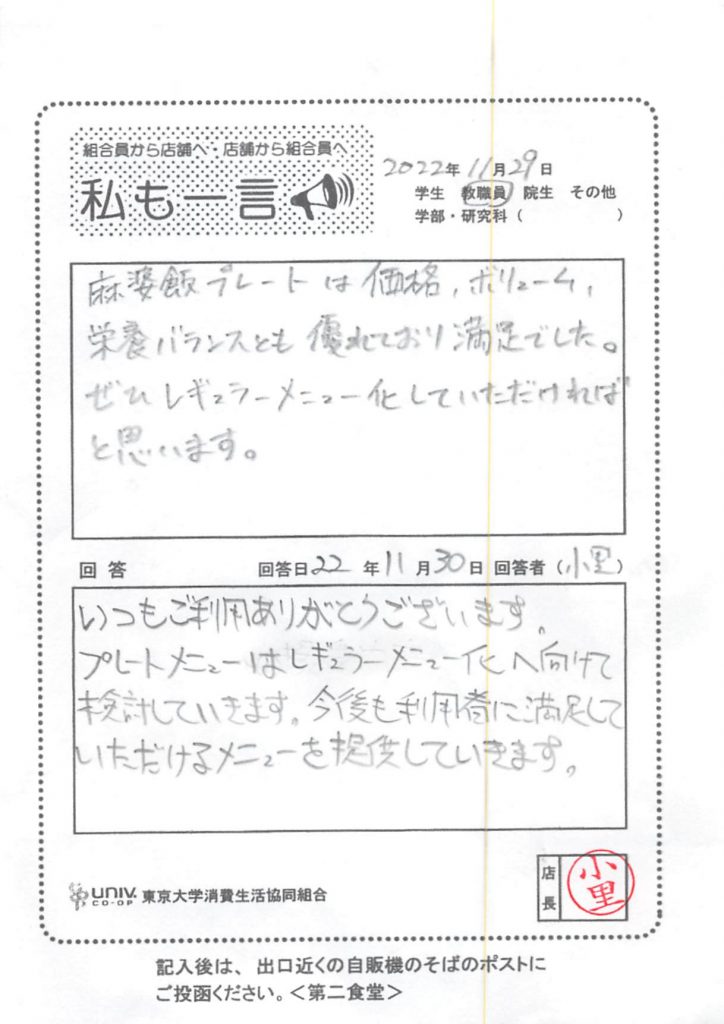 組合員から店舗へ・店舗から組合員へ
私も一言
2022年 11月 29日
学生 教職員 院生 その他
学部・研究科（ ）
麻婆飯プレートは価格，ボリューム，
栄養バランスとも優れており満足でした。
ぜひレギュラーメニュー化していただければ
と思います。
回答 回答日 22 年 11 月 30 日 回答者（小里）
いつもご利用ありがとうございます。
プレートメニューはレギュラーメニュー化へ向けて
検討していきます。今後も利用者に満足して
いただけるメニューを提供していきます。
UNIV. CO-OP 東京大学消費生活協同組合
店長 小里
記入後は、出口近くの自販機のそばのポストに
ご投函ください。＜第二食堂＞